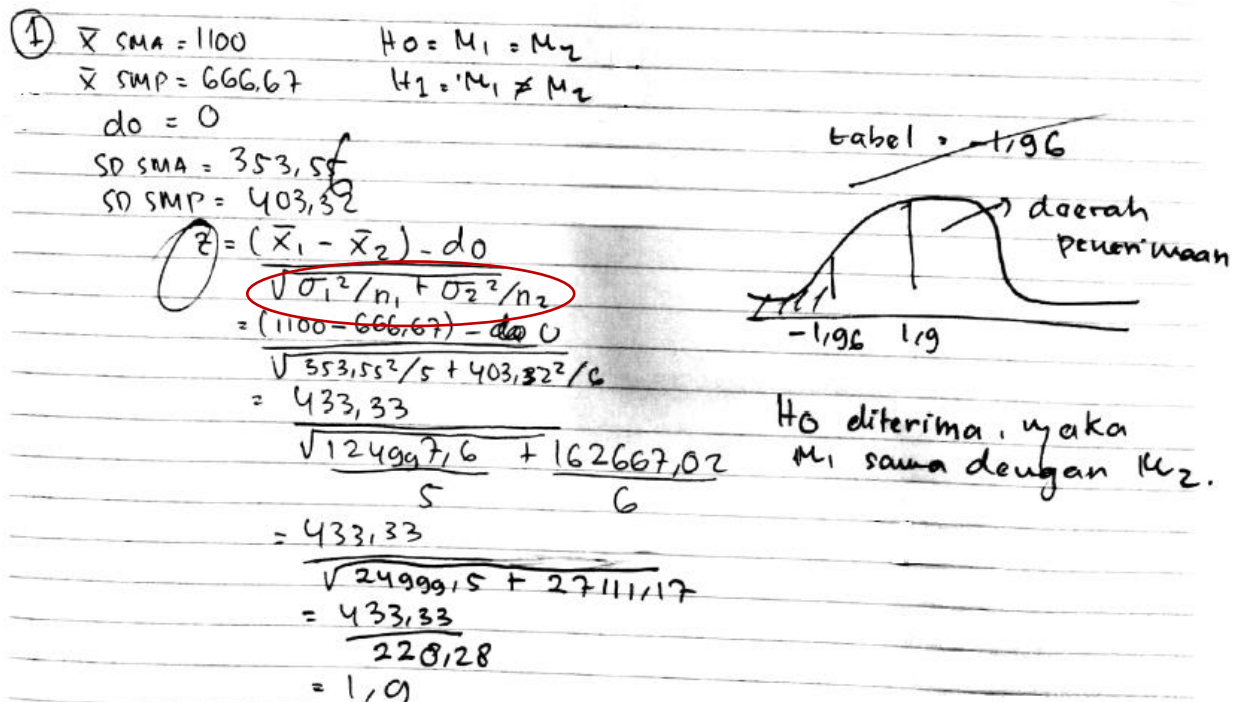 ① x̄ SMA = 1100 H0 = M1 = M2
x̄ SMP = 666,67 H1 = M1 ≠ M2
do = 0
SD SMA = 353,55
SD SMP = 403,32
z = (x̄1 - x̄2) - do
√σ1²/n1 + σ2²/n2
= (1100 - 666,67) - 0
√353,55²/5 + 403,32²/6
= 433,33
√124997,6 + 162667,02
5 6
= 433,33
√24999,5 + 27111,17
= 433,33
228,28
= 1,9
tabel = -1,96
daerah
penerimaan
-1,96 1,9
H0 diterima, maka
M1 sama dengan M2.